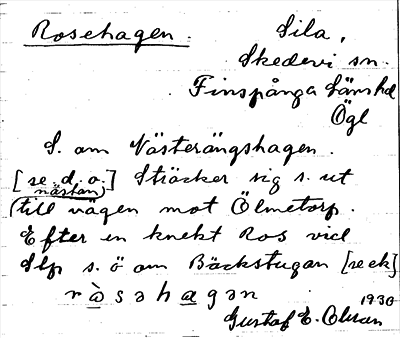 Rosehagen.
Sila,
Skedevi sn.
Finspånga Läns hd
Ögl
S. om Västerängshagen.
[se. d. o.] Sträcker sig s. ut
nästan
(till vägen mot Ölmetorp.
Efter en knekt Ros vid
Slp s. ö om Bäckstugan [se ek]
ròsəhagən
1930
Gustaf E. Olsson